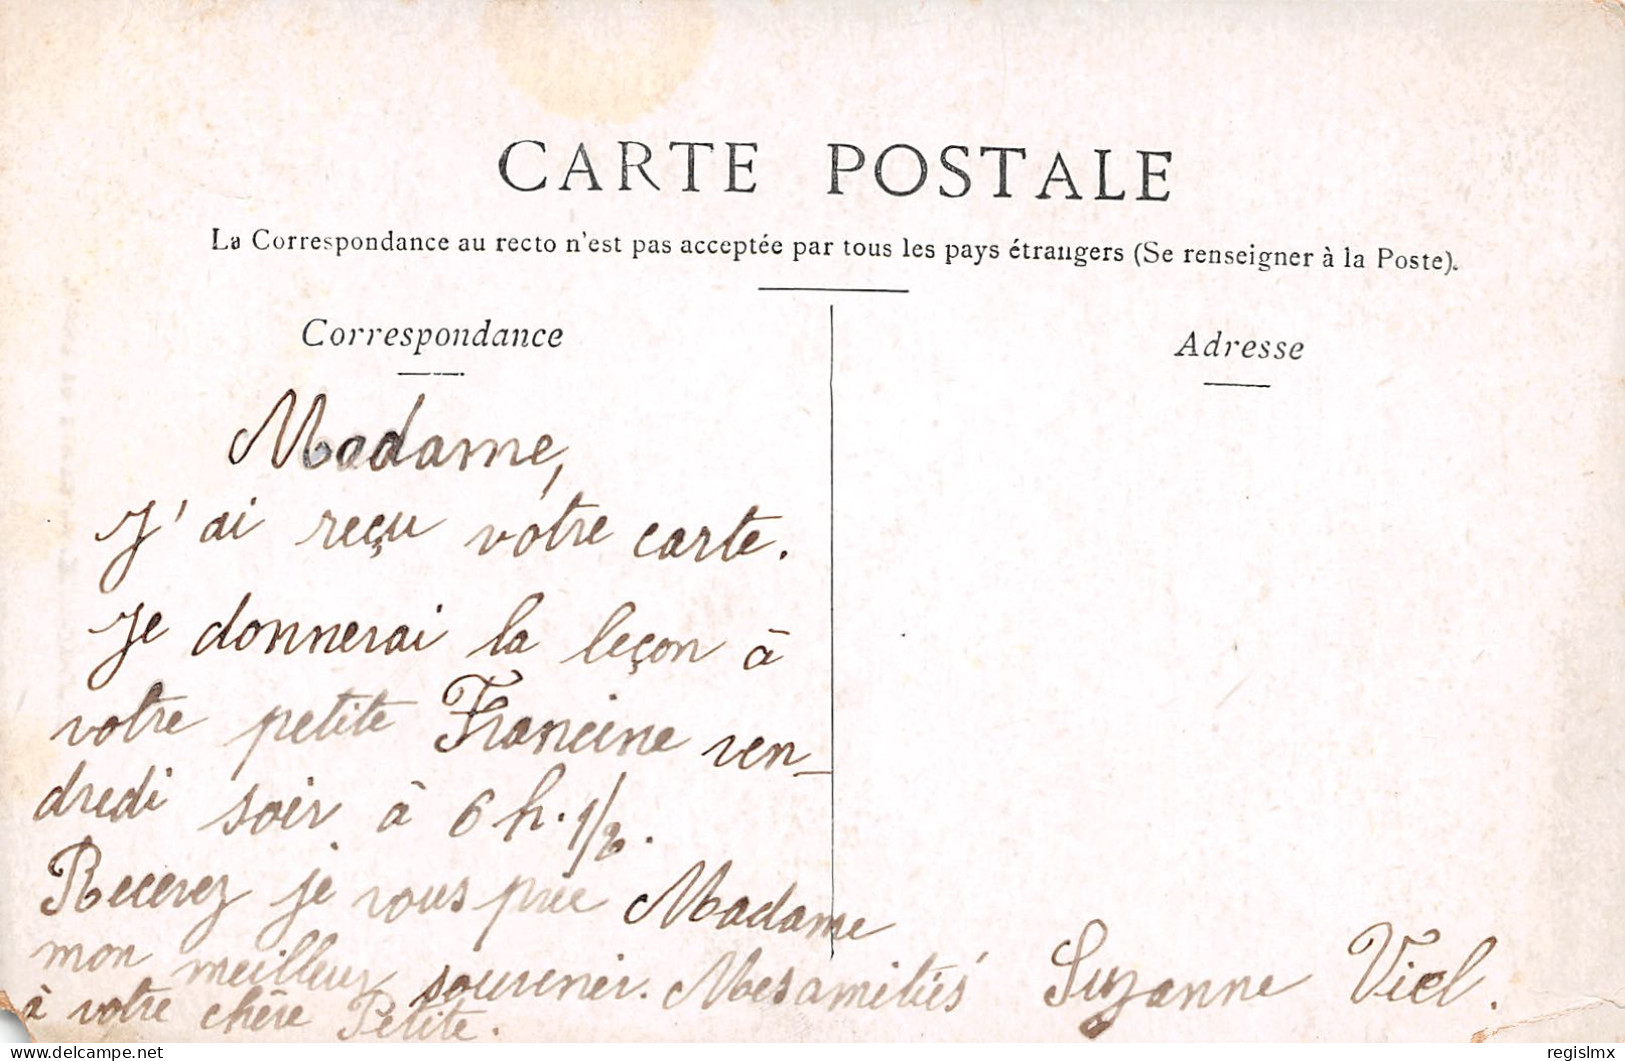 CARTE POSTALE
La Correspondance au recto n'est pas acceptée par tous les pays étrangers (Se renseigner à la Poste).
Correspondance
Adresse
Madame,
J'ai reçu votre carte.
Je donnerai la leçon à
votre petite Francine ven-
dredi soir à 6 h. 1/2.
Recevez je vous prie Madame
mon meilleur souvenir. Mes amitiés
à votre chère Petite.
Suzanne Viel.
delcampe.net
regislmx